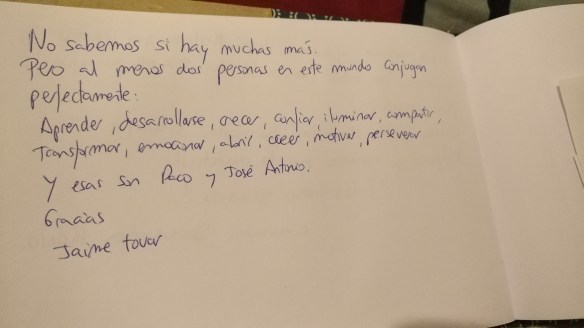 No sabemos si hay muchas más.
Pero al menos dos personas en este mundo conjugan
perfectamente:
Aprender, desarrollarse, crecer, confiar, iluminar, compartir,
Transformar, emocionar, abrir, creer, motivar, perseverar
Y esas son Paco y José Antonio.
Gracias
Jaime tovar